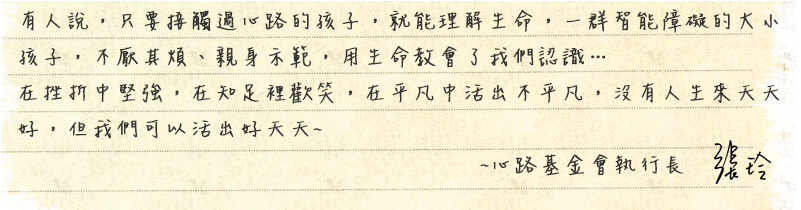 有人說，只要接觸過心路的孩子，就能理解生命，一群智能障礙的大小
孩子，不厭其煩、親身示範，用生命教會了我們認識…
在挫折中堅強，在知足裡歡笑，在平凡中活出不平凡，沒有人生來天天
好，但我們可以活出好天天~
~心路基金會執行長 張玲